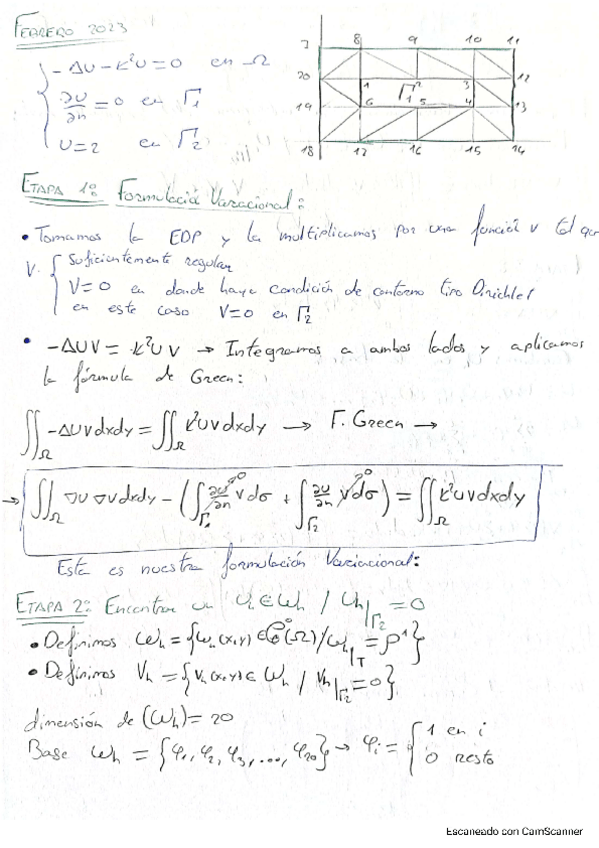 FEBRERO 2023
7 8 9 10 11
-ΔU - k²U = 0 en Ω
20 1 2 3 12
∂U/∂n = 0 en Γ₁
19 6 Γ₁ 5 4 13
U = 2 en Γ₂
18 17 16 15 14
ETAPA 1º: Formulació Variacional:
• Tomamos la EDP y la multiplicamos por una función v tal que
V. { Suficientemente regular
V = 0 en donde haya condición de contorno tipo Dirichlet
en este caso V = 0 en Γ₂
• -ΔUV = k²UV → Integramos a ambos lados y aplicamos
la fórmula de Green:
∬_Ω -ΔUVdxdy = ∬_Ω k²UVdxdy → F. Green →
→ ∬_Ω ∇u ∇v dxdy - (∫_Γ₁ ∂u/∂n⁰ v dσ + ∫_Γ₂ ∂u/∂n v⁰ dσ) = ∬_Ω k²uvdxdy
Esta es nuestra formulación Variacional:
ETAPA 2º: Encontrar un Uₕ ∈ Wₕ / Uₕ|Γ₂ = 0
• Definimos Wₕ = {wₕ(x,y) ∈ C⁰(Ω) / wₕ|T = P¹}
• Definimos Vₕ = {vₕ(x,y) ∈ Wₕ / Vₕ|Γ₂ = 0}
dimensión de (Wₕ) = 20
Base Wₕ = {φ₁, φ₂, φ₃, ..., φ₂₀} → φᵢ = { 1 en i
0 resto
Escaneado con CamScanner